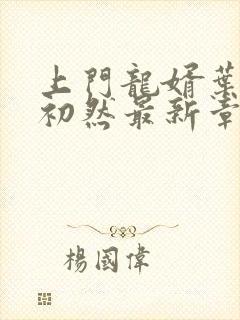 上門龍婿葉
初然最新章
楊國偉